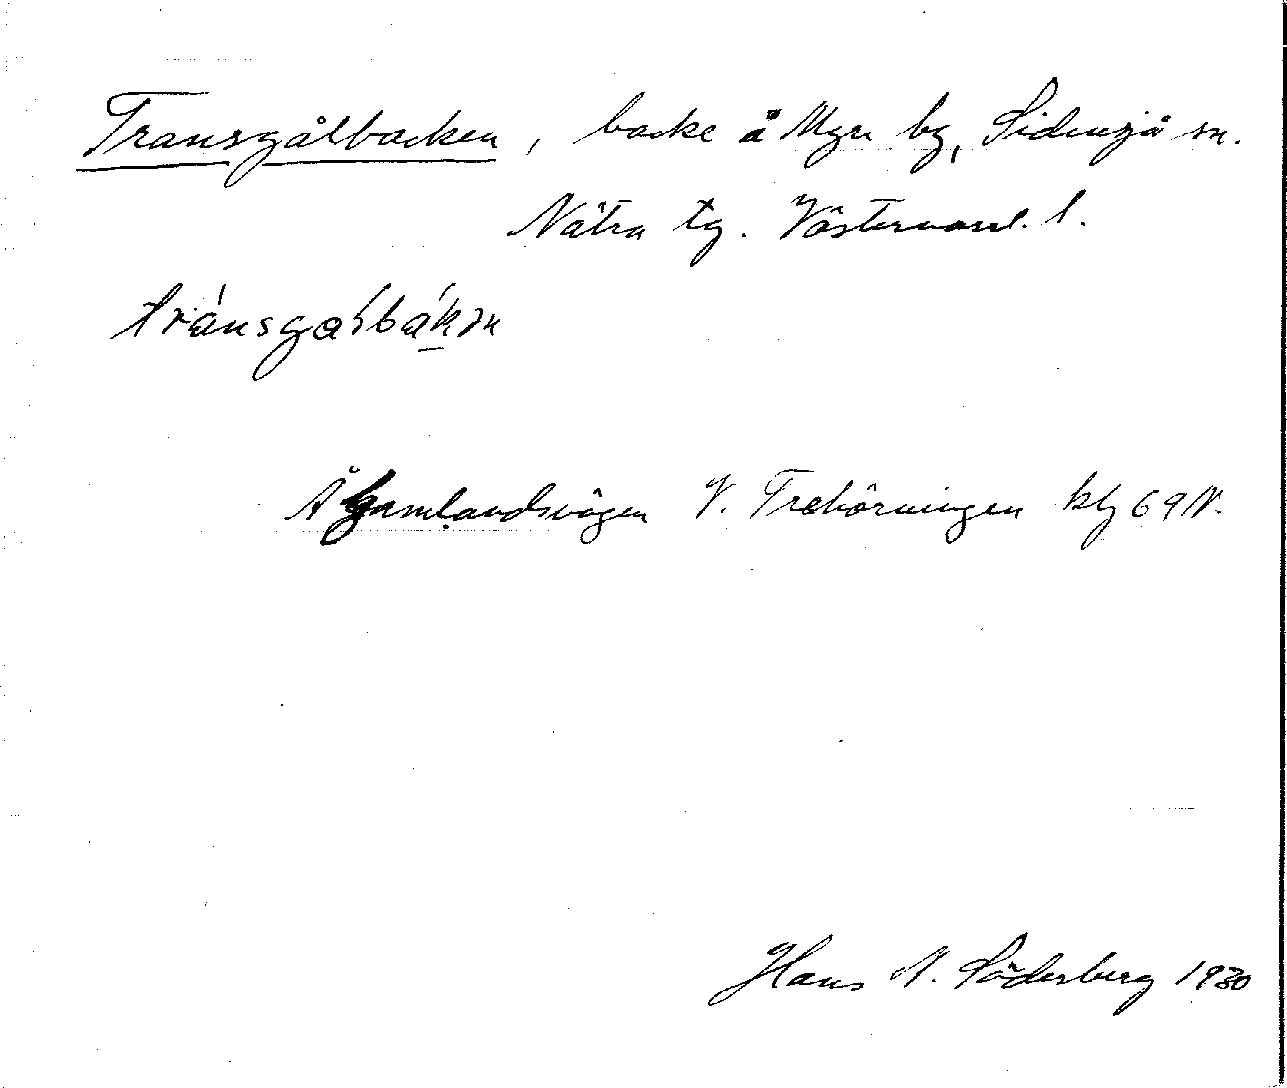 Transgålbacken, backe å Myre by, Sidensjö sn.
Nätra tg. Västernorrl. l.
Å Gamlandsvägen V. Trehörningen blg 69 N.
Hans N. Söderberg 1930